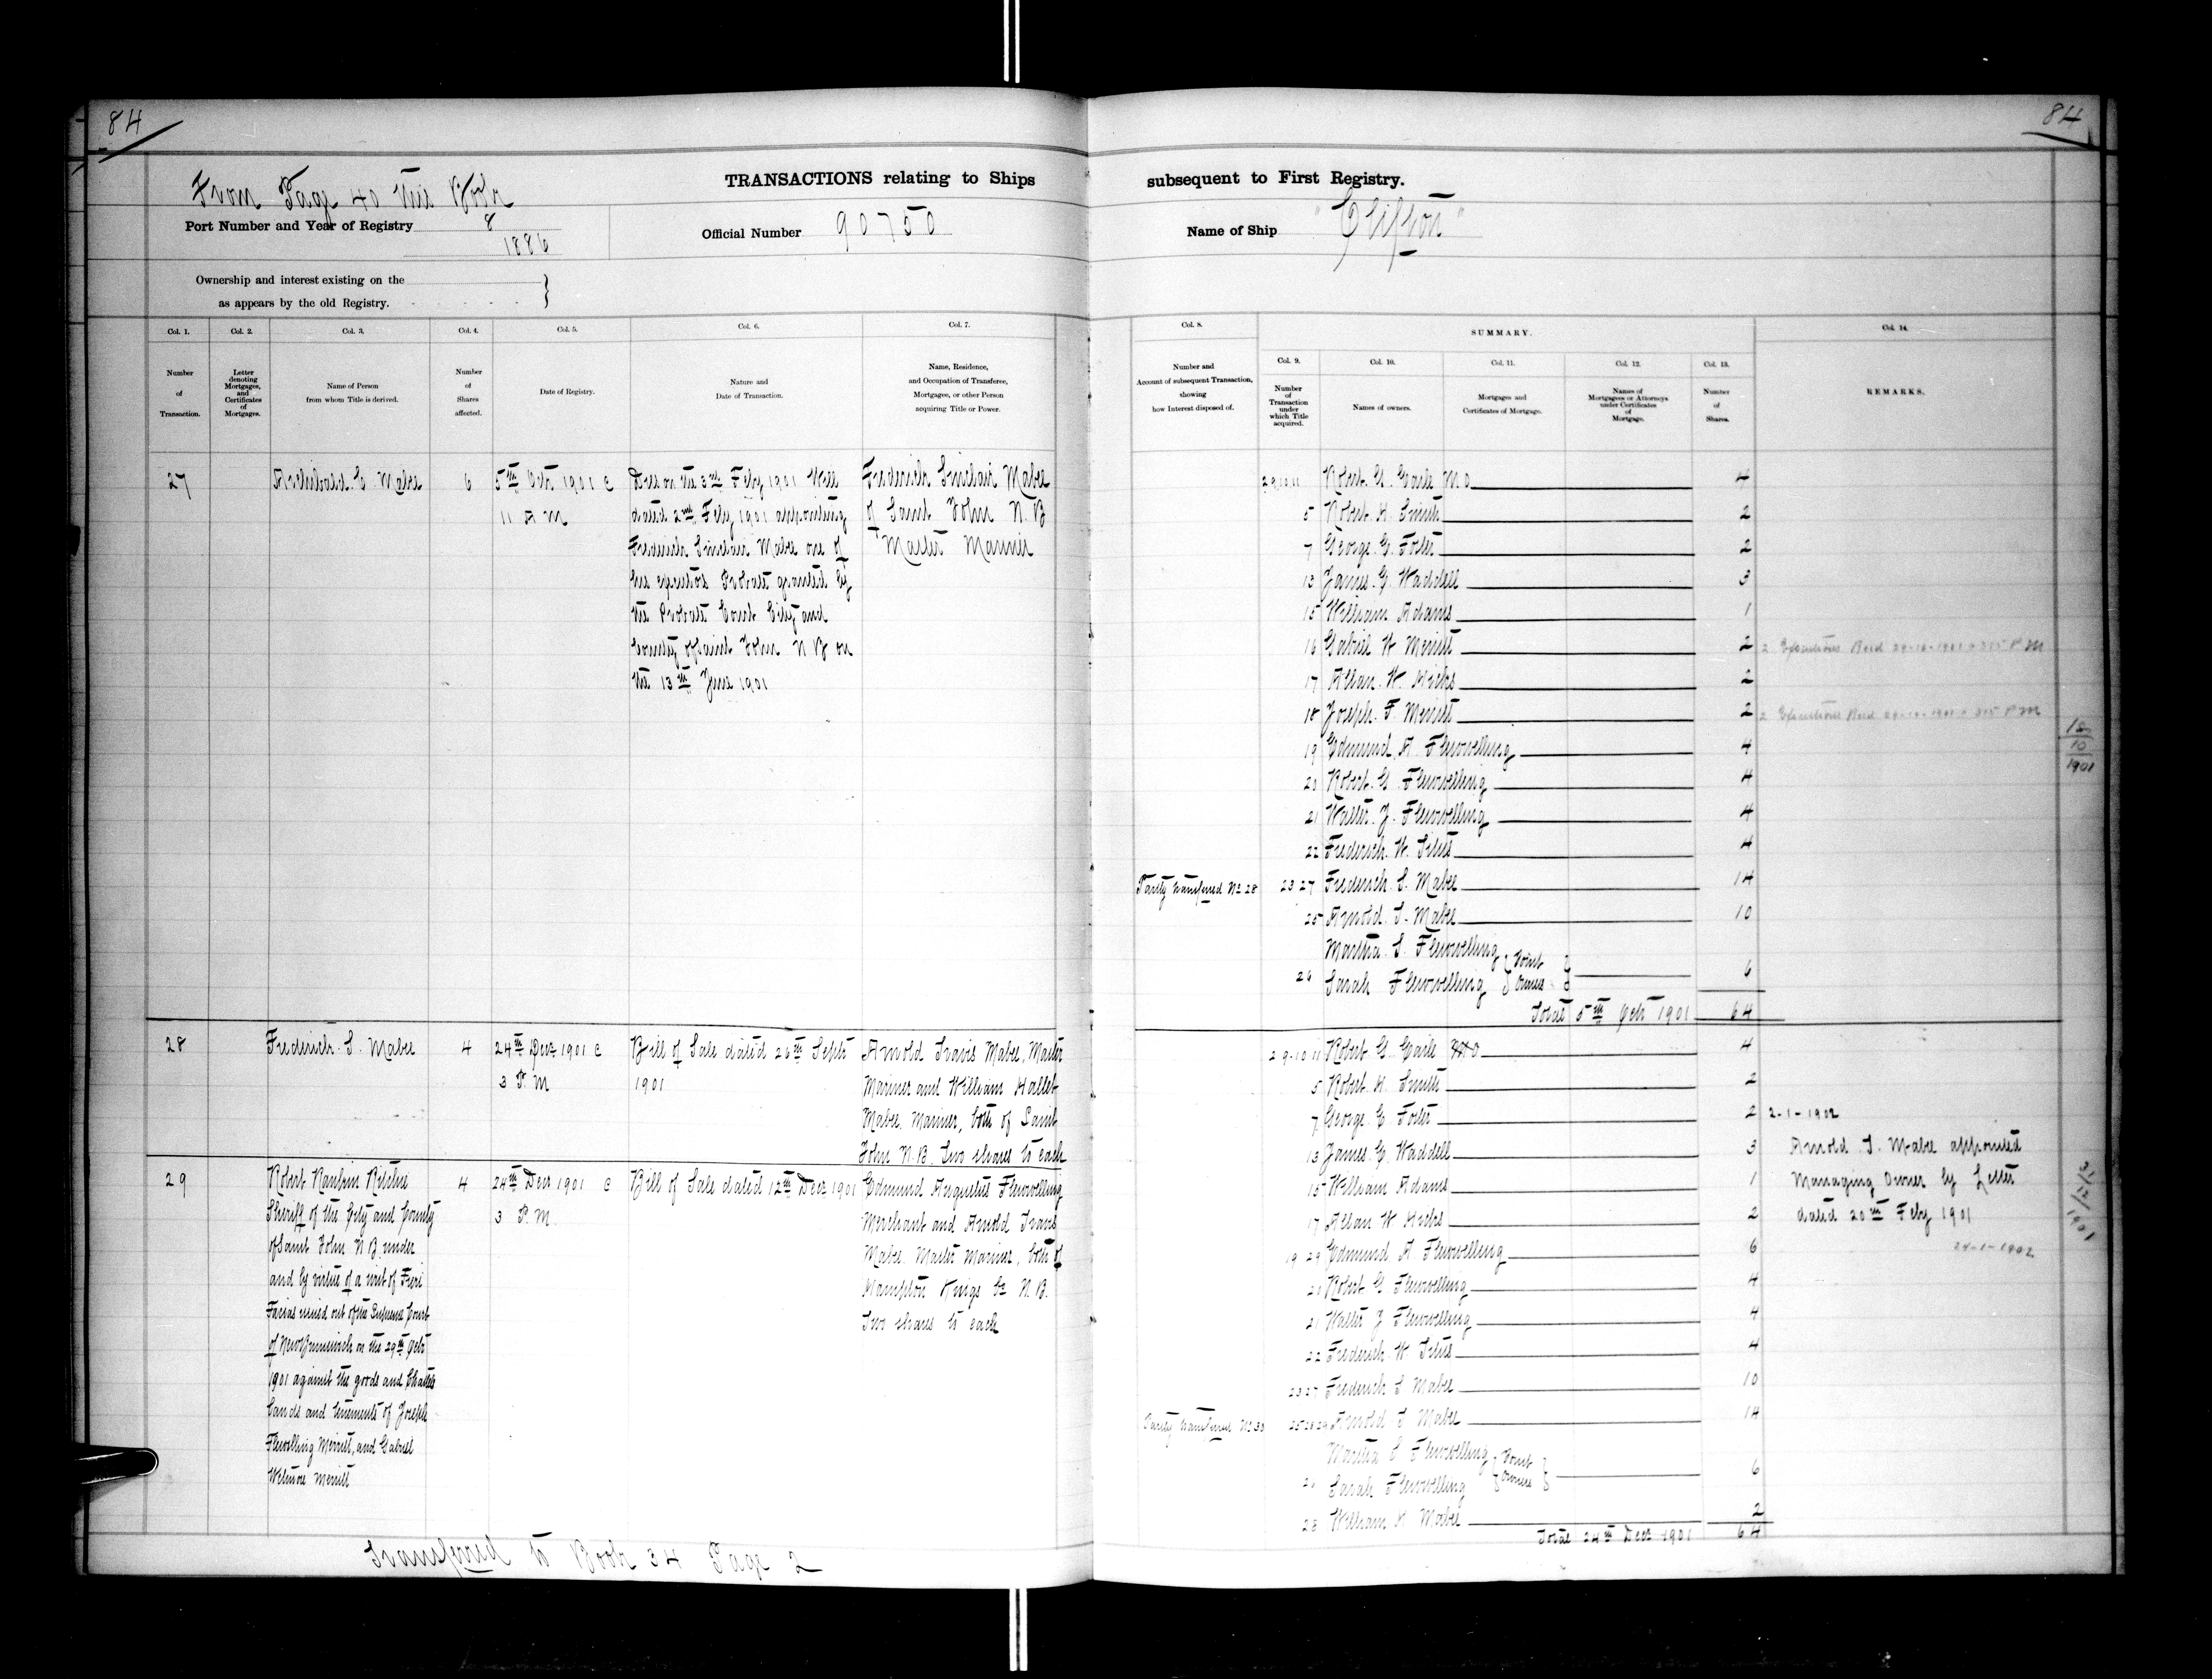 84
84
From Page 40 this Book
TRANSACTIONS relating to Ships
subsequent to First Registry.
Port Number and Year of Registry 8
1886
Official Number 90750
Name of Ship "Clifton"
Ownership and interest existing on the
as appears by the old Registry.
Col. 1.
Number
of
Transaction.
Col. 2.
Letter
denoting
Mortgages,
and
Certificates
of
Mortgages.
Col. 3.
Name of Person
from whom Title is derived.
Col. 4.
Number
of
Shares
affected.
Col. 5.
Date of Registry.
Col. 6.
Nature and
Date of Transaction.
Col. 7.
Name, Residence,
and Occupation of Transferee,
Mortgagee, or other Person
acquiring Title or Power.
Col. 8.
Number and
Account of subsequent Transaction,
showing
how Interest disposed of.
SUMMARY.
Col. 9.
Number
of
Transaction
under
which Title
acquired.
Col. 10.
Names of owners.
Col. 11.
Mortgages and
Certificates of Mortgage.
Col. 12.
Names of
Mortgagees or Attorneys
under Certificates
of
Mortgage.
Col. 13.
Number
of
Shares.
Col. 14.
REMARKS.
27
Archibald. C. Mabee
6
5th Octr 1901 @
11 A M
Died on the 3rd Feby 1901 Will
dated 2nd Feby 1901 appointing
Frederick Sinclair Mabee one of
his executors Probate granted by
the Probate Court City and
County of Saint John N B on
the 13th June 1901
Frederick Sinclair Mabee
of Saint John N. B
Master Mariner
2 9 10 11 Robert. G. Earle M O 4
5 Robert. H. Smith 2
7 George. E. Foster 2
13 James. G. Waddell 3
15 William Adams 1
16 Gabriel W Merritt 2 2 Executions Recd 29-10-1901 @ 3.15 P M
17 Allan. W. Hicks 2
18 Joseph. F. Merritt 2 2 Executions Recd 29-10-1901 @ 3.15 P M
19 Edmund A Flewwelling 4
20 Robert. G. Flewwelling 4
21 Walter. J. Flewwelling 4
22 Frederick. W. Titus 4
Partly transferred No 28 23 27 Frederick. S. Mabee 14
25 Arnold. T. Mabee 10
Martha. S. Flewwelling
26 Sarah Flewwelling Joint Owners 6
Total 5th Octr 1901 64
18/10/1901
28
Frederick. S. Mabee
4
24th Decr 1901 @
3 P. M
Bill of Sale dated 26th Septr
1901
Arnold Travis Mabee, Master
Mariner and William Hallet
Mabee. Mariner, both of Saint
John N. B. Two shares to each
29
Robert Rankin Ritchie
Sheriff of the City and County
of Saint John N B under
and by virtue of a writ of Fieri
Facias issued out of the Supreme Court
of New Brunswick on the 29th Octr
1901 against the goods and Chattels
Lands and tenements of Joseph
Flewelling Merritt, and Gabriel
Wetmore Merritt
4
24th Decr 1901 @
3 P. M.
Bill of Sale dated 12th Decr 1901
Edmund Augustus Flewwelling
Merchant and Arnold Travis
Mabee. Master Mariner, both of
Hampton Kings Co N. B.
Two shares to each
2 9-10 11 Robert G Earle 4
5 Robert. H. Smith 2
7 George E Foster 2
13 James. G. Waddell 3
15 William Adams 1
17 Allan W Hicks 2
19 29 Edmund A Flewwelling 6
20 Robert G Flewwelling 4
21 Walter J Flewwelling 4
22 Frederick W Titus 4
23 27 Frederick S Mabee 10
Partly transferred No 30 25 28 29 Arnold T Mabee 14
Martha S Flewwelling
26 Sarah Flewwelling Joint Owners 6
28 William H Mabee 2
Total 24th Decr 1901 64
2-1-1902
Arnold T. Mabee appointed
Managing Owner by Letter
dated 20th Feby 1901
24-1-1902
31/12/1901
Transferred to Book 34 Page 2